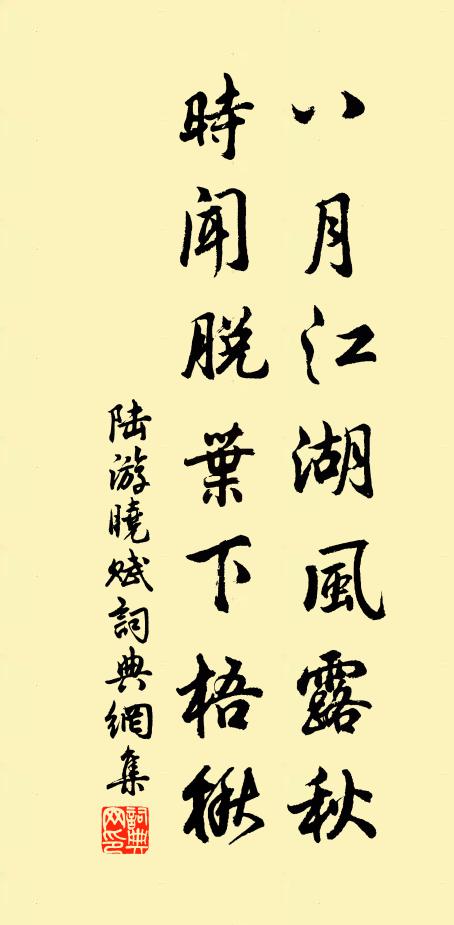 八月江湖風露秋
時聞脱葉下梧楸
陆游曉赋詞典網集
詞典
网印